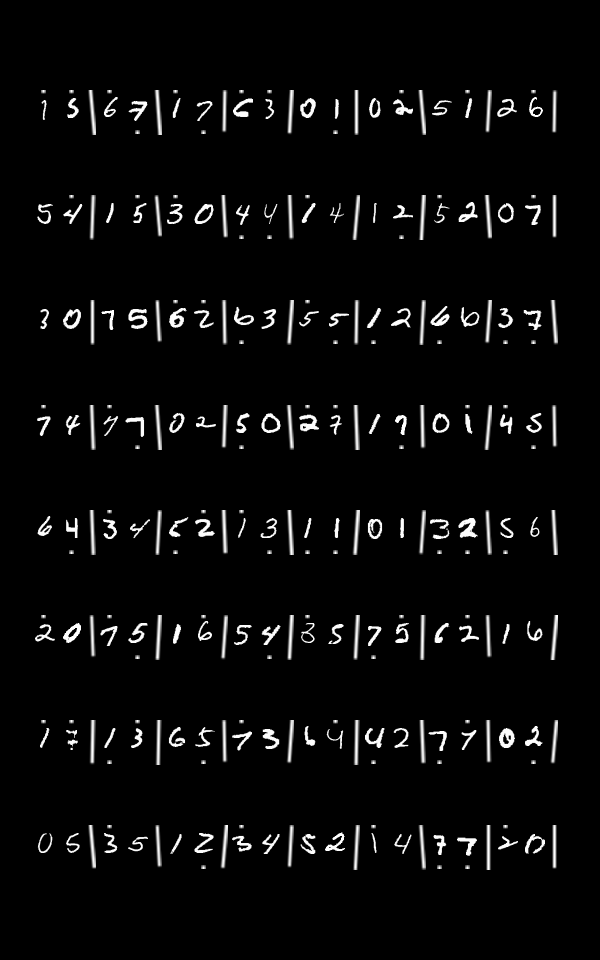 1̇ 5̇ | 6̇ 7̣ | 1̇ 7̣ | 6̇ 3̇ | 0̇ 1̣ | 0 2̇ | 5 1̇ | 2 6̇ |
5 4̇ | 1 5̇ | 3̇ 0 | 4̣ 4̣ | 1̇ 4 | 1 2̣ | 5̇ 2 | 0 7̇ |
3 0 | 7 5 | 6̇ 2̇ | 6̣ 3 | 5̇ 5̣ | 1̣ 2 | 6̣ 6 | 3̣ 7̣ |
7̇ 4 | 7̇ 7̣ | 0 2 | 5̣ 0 | 2̇ 7̇ | 1 7̣ | 0 1̇ | 4̇ 5̣ |
6 4̣ | 3̇ 4 | 5̣ 2̇ | 1̇ 3 | 1̣ 1̣ | 0 1 | 3̣ 2̣ | 5̣ 6 |
2̇ 0 | 7̇ 5̣ | 1 6̇ | 5 4̣ | 3̇ 5 | 7̣ 5̇ | 6 2̇ | 1 6 |
1̇ 7̇ | 1̣ 3̇ | 6 5̣ | 7̇ 3 | 6 4̇ | 4̣ 2 | 7̣ 7̇ | 0 2̣ |
0 5 | 3̇ 5 | 1 2̣ | 3̇ 4 | 5 2 | 1̇ 4 | 7̣ 7̣ | 2̇ 0 |